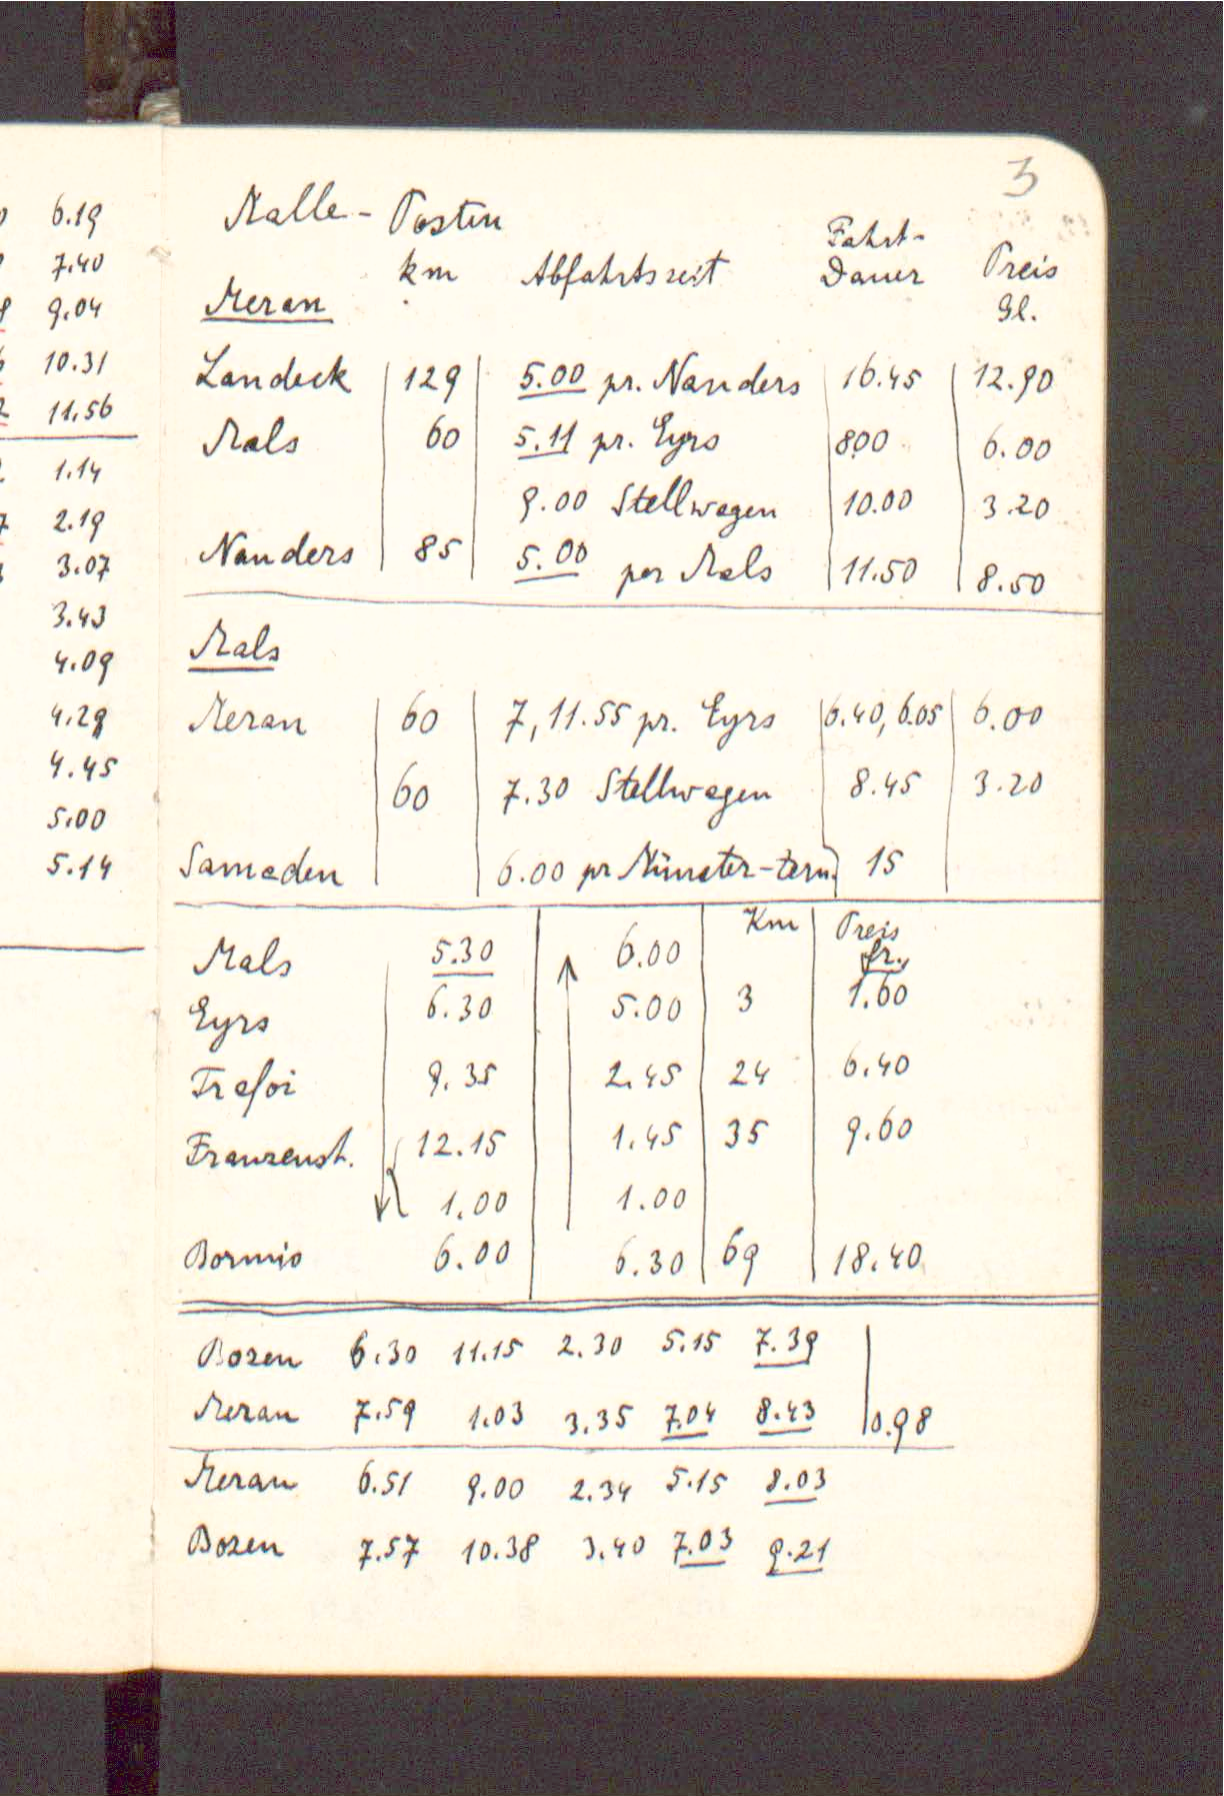 6.19
7.40
9.04
10.31
11.56
1.14
2.19
3.07
3.43
4.09
4.29
4.45
5.00
5.14
3
Malle-Posten
km Abfahrtszeit Fahrt-Dauer Preis
Meran Gl.
Landeck 129 5.00 pr. Nanders 16.45 12.90
Mals 60 5.11 pr. Eyrs 8.00 6.00
9.00 Stellwagen 10.00 3.20
Nanders 85 5.00 per Mals 11.50 8.50
Mals
Meran 60 7, 11.55 pr. Eyrs 6.40, 6.05 6.00
60 7.30 Stellwagen 8.45 3.20
Samaden 6.00 pr Münster-tern. 15
Km Preis
Mals 5.30 6.00 fr.
Eyrs 6.30 5.00 3 1.60
Trafoi 9.35 2.45 24 6.40
Franzensh. 12.15 1.45 35 9.60
1.00 1.00
Bormio 6.00 6.30 69 18.40
Bozen 6.30 11.15 2.30 5.15 7.39
Meran 7.59 1.03 3.35 7.04 8.43 0.98
Meran 6.51 9.00 2.34 5.15 8.03
Bozen 7.57 10.38 3.40 7.03 9.21